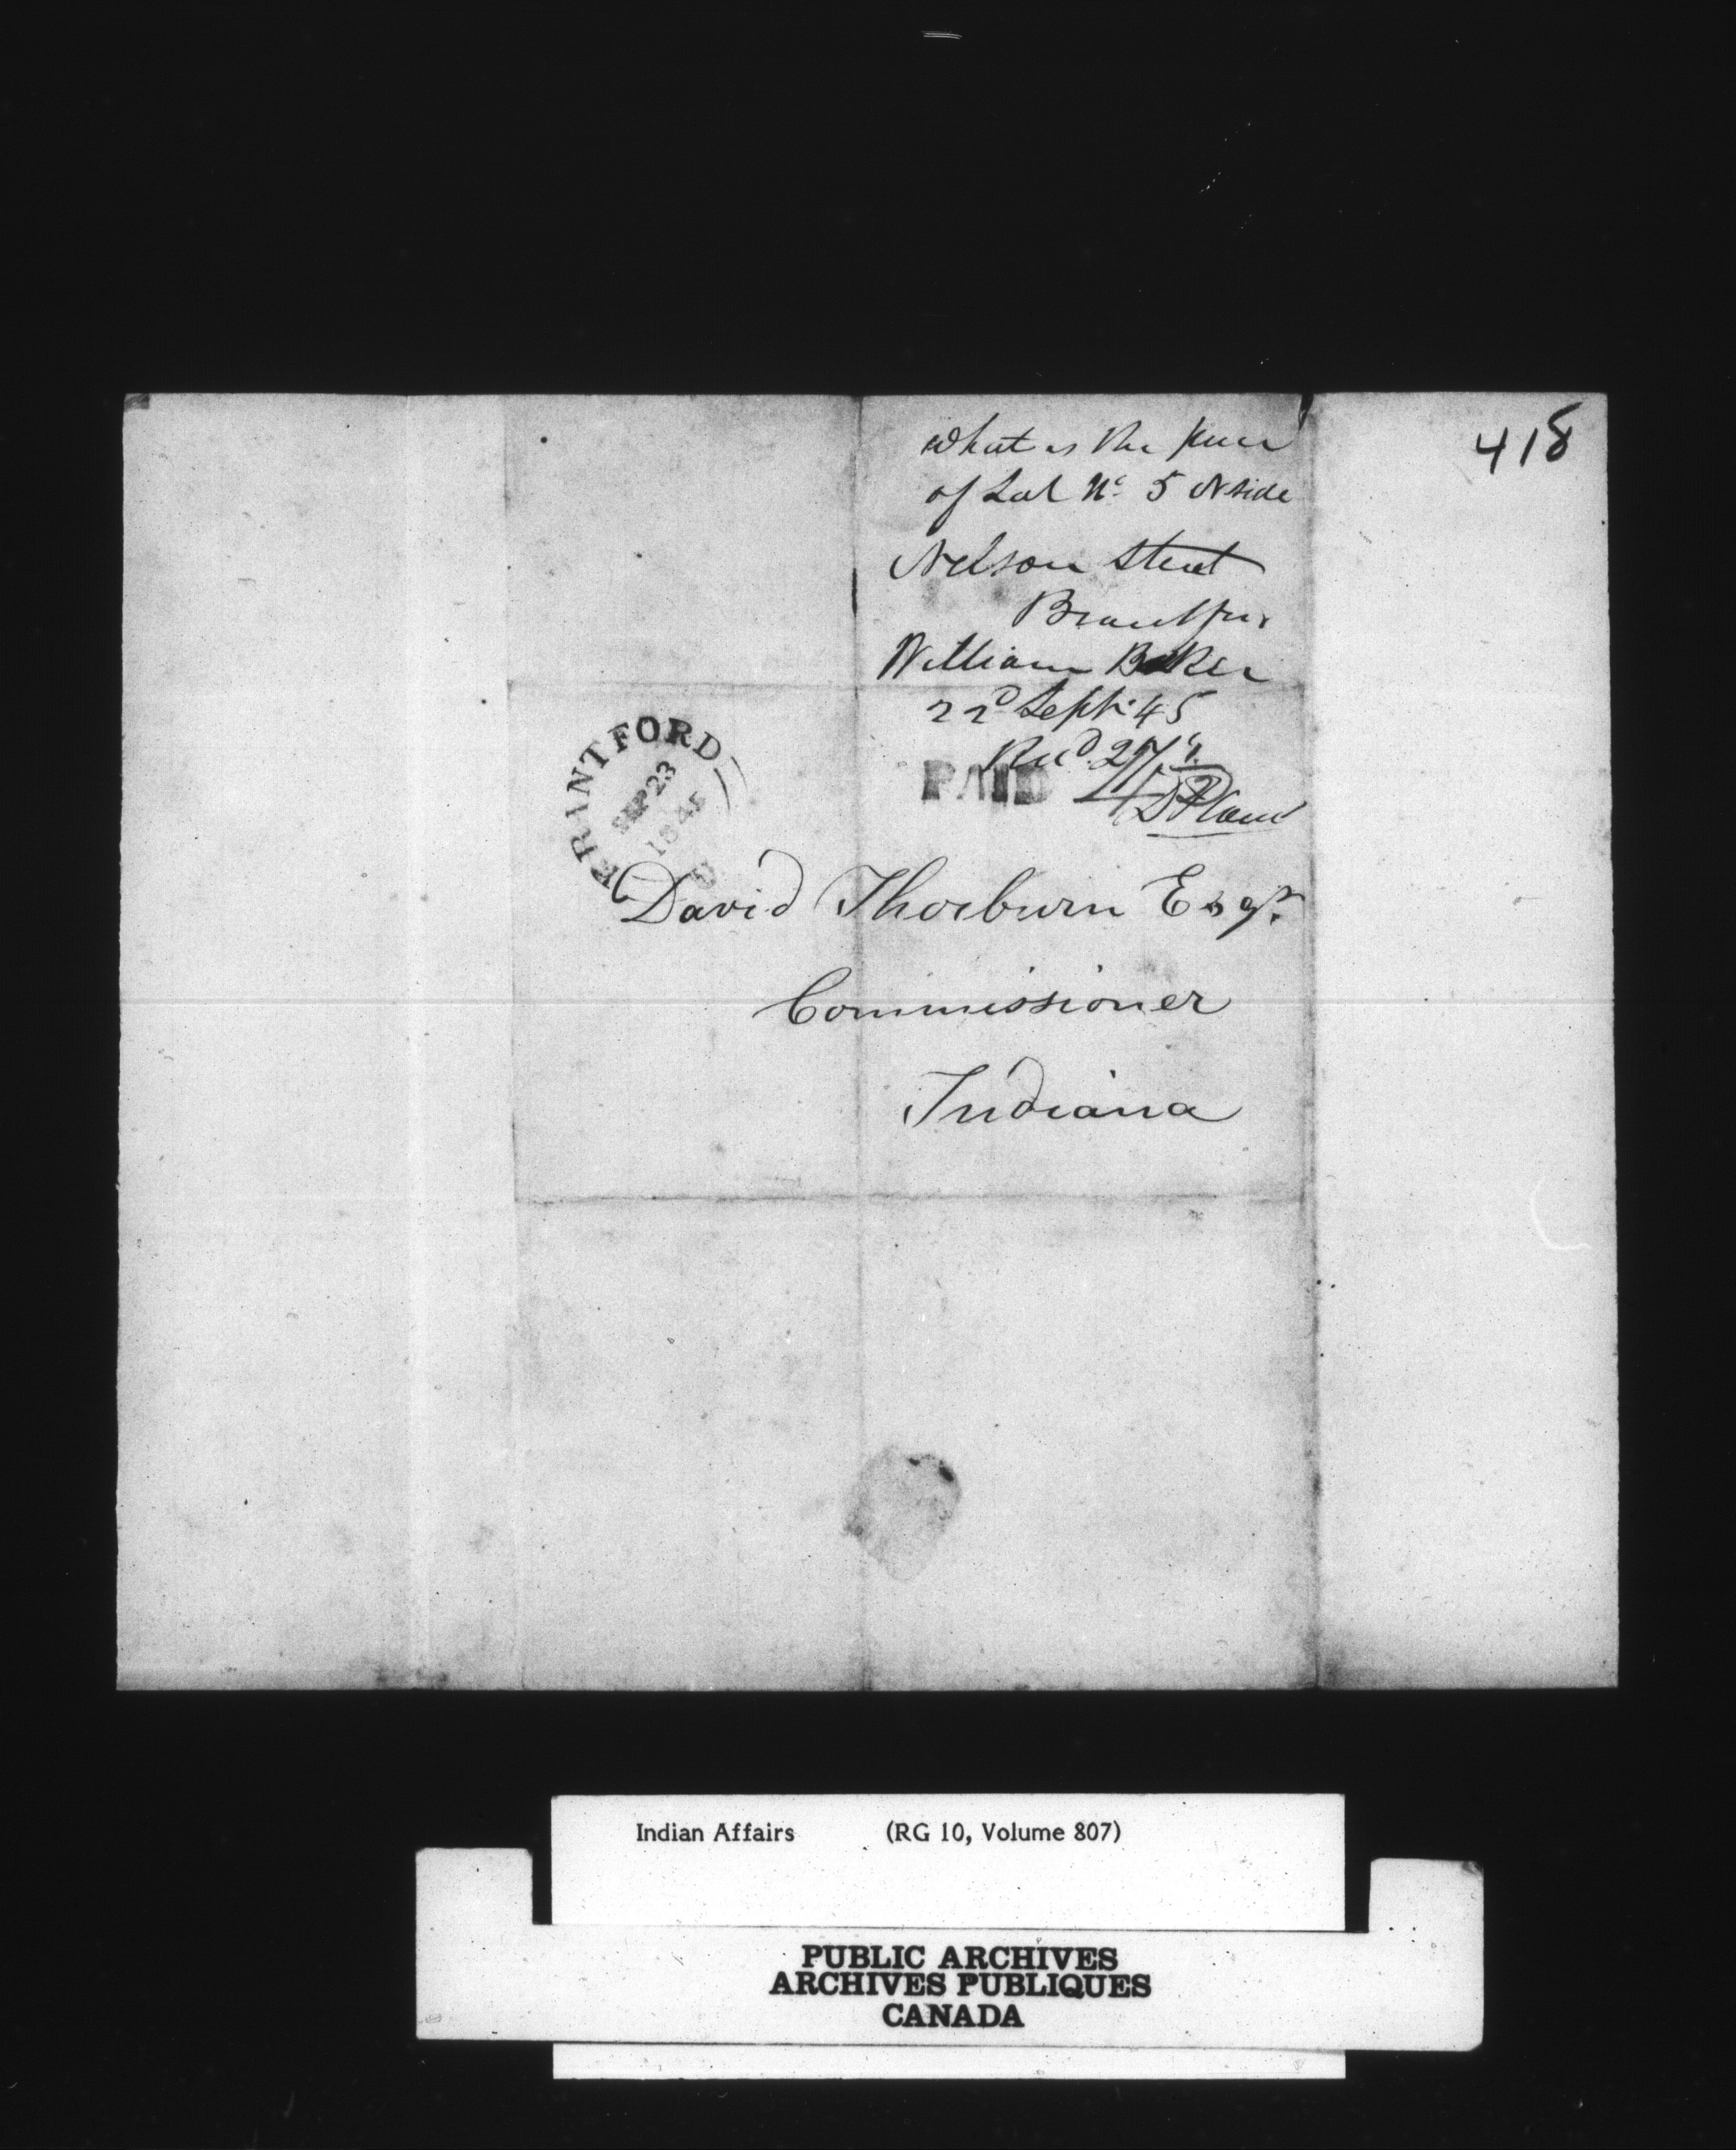 418
What is the price
of Lot No. 5 N side
Nelson Street
Brantford
William Baker
22d Sept. 45
Recd. 27
PAID
BRANTFORD
SEP 23
1845
David Thorburn Esqr.
Commissioner
Indiana
Indian Affairs (RG 10, Volume 807)
PUBLIC ARCHIVES
ARCHIVES PUBLIQUES
CANADA